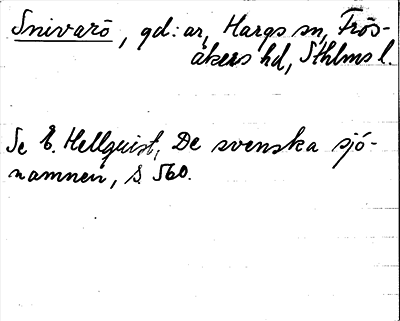 Snivarö, gd:ar, Hargs sn, Frös-
åkers hd, Sthlms l.
Se E. Hellquist, De svenska sjö-
namnen, s. 560.